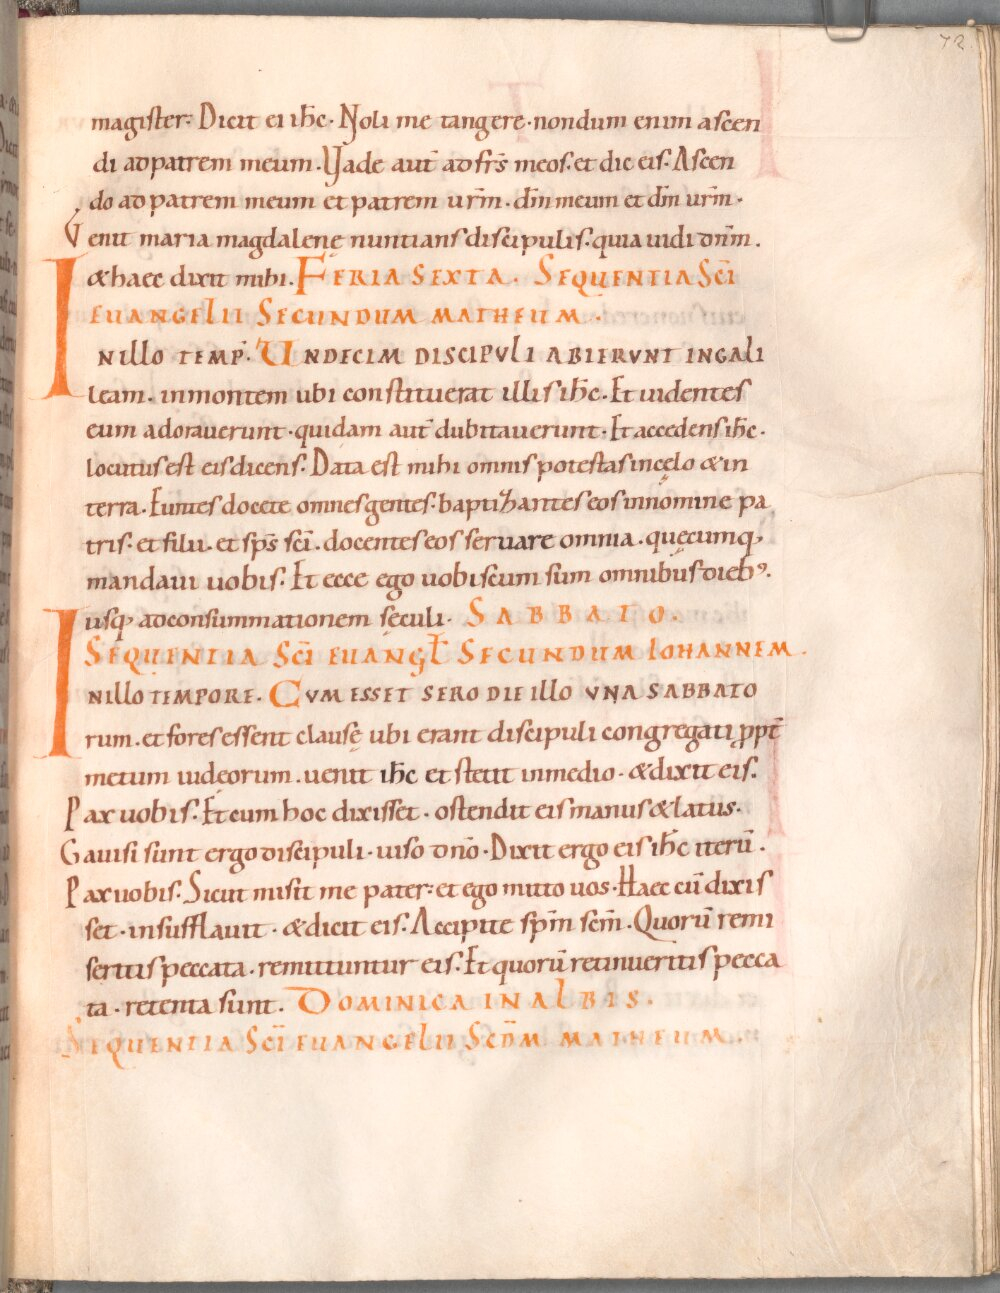 72
magister. Dicit ei ihc. Noli me tangere. nondum enim ascen
di ad patrem meum. Vade aut̄ ad frs̄ meos. et dic eis. Ascen
do ad patrem meum et patrem urm̄. dm̄ meum et dm̄ urm̄.
Venit maria magdalenę nuntians discipulis. quia uidi dnm̄.
& haec dixit mihi. FERIA SEXTA. SEQUENTIA SCI
EUANGELII SECUNDUM MATHEUM.
IN ILLO TEMP̄. UNDECIM DISCIPULI ABIERVNT IN GALI
leam. in montem ubi constituerat illis ihc. Et uidentes
eum adorauerunt. quidam aut̄ dubitauerunt. Et accedens ihc.
locutus est eis dicens. Data est mihi omnis potestas in cęlo & in
terra. Euntes docete omnes gentes. baptizantes eos in nomine pa
tris. et filii. et sps̄ scī. docentes eos seruare omnia. quęcumq;
mandaui uobis. Et ecce ego uobiscum sum omnibus dieb;.
usq; ad consummationem sęculi. SABBATO.
SEQUENTIA SCI EUANGL̄ SECUNDUM IOHANNEM.
IN ILLO TEMPORE. CVM ESSET SERO DIE ILLO VNA SABBATO
rum. et fores essent clausę ubi erant discipuli congregati ppt̄
metum iudeorum. uenit ihc et stetit in medio. & dixit eis.
Pax uobis. Et cum hoc dixisset. ostendit eis manus & latus.
Gauisi sunt ergo discipuli. uiso dnō. Dixit ergo eis ihc iterū.
Pax uobis. Sicut misit me pater. et ego mitto uos. Haec cū dixis
set. insufflauit. & dicit eis. Accipite spm̄ scm̄. Quorū remi
seritis peccata. remittuntur eis. Et quorū retinueritis pecca
ta. retenta sunt. DOMINICA IN ALBIS.
SEQUENTIA SCI EUANGELII SCDM MATHEUM.